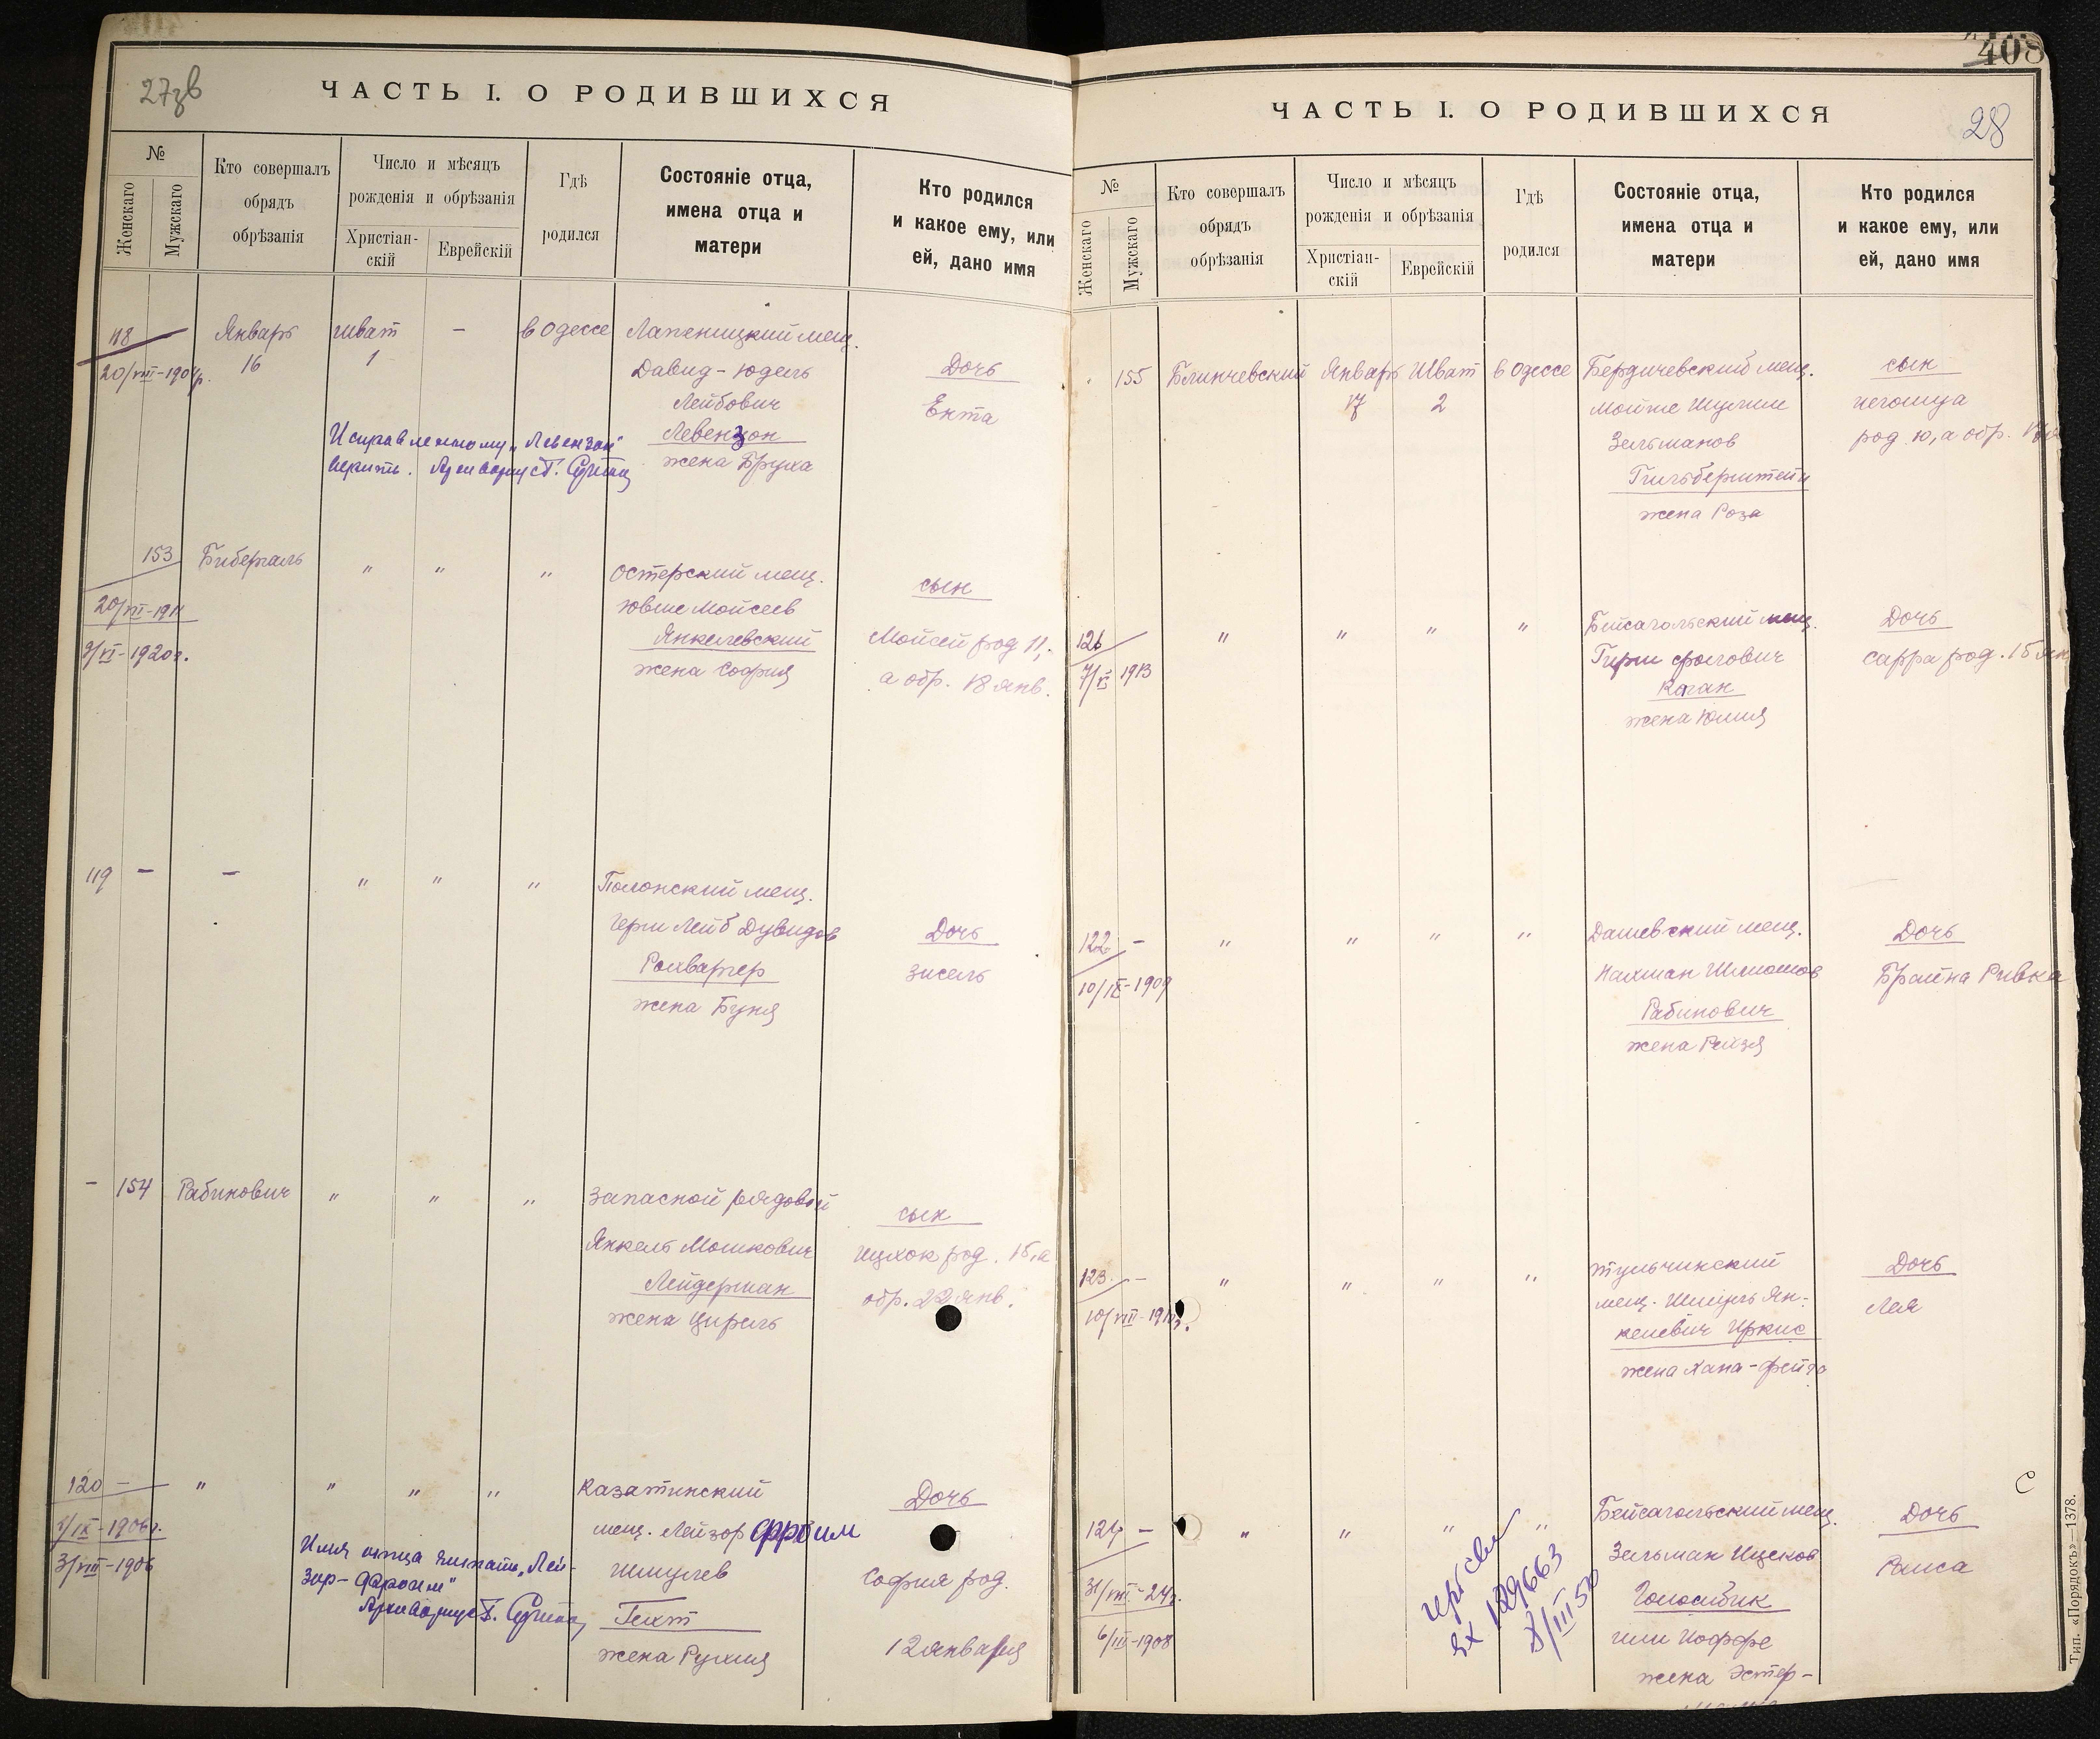 27зв
ЧАСТЬ I. О РОДИВШИХСЯ
№
Женскаго
Мужскаго
Кто совершалъ
обрядъ
обрѣзанія
Число и мѣсяцъ
рожденія и обрѣзанія
Христіан-
скій
Еврейскій
Гдѣ
родился
Состояніе отца,
имена отца и
матери
Кто родился
и какое ему, или
ей, дано имя
118
20/VIII-190
Январь
16
шват
1
-
в Одессе
мещ.
Давид-Юдель
Лейбович
Левензон
жена Бруха
Дочь
Ента
Исправленному „Левензон"
верить. Архивариус
153
20/VII-191
9/VI-1920г.
Бибергаль
"
"
"
Остерский мещ.
Мойсеев
Янкелевский
жена София
сын
Мойсей род 11,
а обр. 18 янв.
119
-
-
"
"
"
Полонский мещ.
Герш Лейб Дувидов
жена Буня
Дочь
Зисель
-
154
Рабинович
"
"
"
Запасной рядовой
Янкель Мошкович
Лейдерман
жена Цирель
сын
Ицхок род. 15, а
обр. 22 янв.
120
-
/IX-1906г.
3/VIII-1906
"
"
"
"
Казатинский
мещ. Лейзор Фроим
Шмулев
Гехт
жена Рухля
Дочь
София род.
12 января
Имя отца читать „Лей-
зор-Фроим"
Архивариус
408
ЧАСТЬ I. О РОДИВШИХСЯ
28
№
Женскаго
Мужскаго
Кто совершалъ
обрядъ
обрѣзанія
Число и мѣсяцъ
рожденія и обрѣзанія
Христіан-
скій
Еврейскій
Гдѣ
родился
Состояніе отца,
имена отца и
матери
Кто родился
и какое ему, или
ей, дано имя
155
Блинчевский
Январь
17
Шват
2
в Одессе
Бердичевский мещ.
Мойше Шулим
Зельманов
Гильберштейн
жена Роза
сын
Иегошуа
род. 10, а обр. 17
7/VI 1913
"
"
"
"
Бейсагольский мещ.
Гирш Фролович
Каган
жена Юлия
Дочь
Сарра род. 15 янв
122
-
10/IX-1909
"
"
"
"
Дашевский мещ.
Нахман Шлиомов
Рабинович
жена Рейзя
Дочь
Брайна Ривка
123
-
10/VIII-191
"
"
"
"
Тульчинский
мещ. Шмиль Ян-
келевич Иркис
жена Хана-Фейга
Дочь
Лея
124
-
31/VIII-24г.
6/III-1908
"
"
"
"
Бейсагольский мещ.
Зельман Ицков
или Иоффе
жена Эстер-
Дочь
Раиса
129663
III 50
С
Тип. «Порядокъ»—1378.